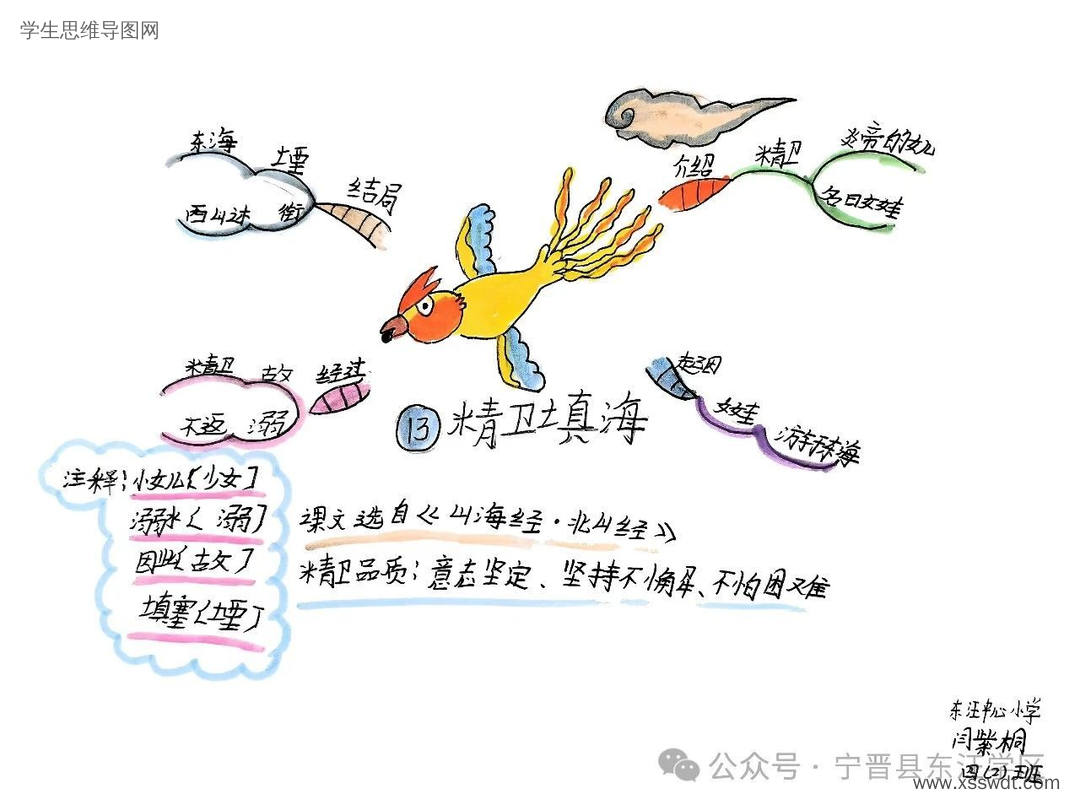 学生思维导图网
东海
堙
结局
西山木石
衔
介绍
精卫
炎帝的女儿
名曰女娃
精卫
故
经过
不返
溺
起因
女娃
游于东海
13 精卫填海
注释:小女儿〔少女〕
溺水〔溺〕
因此〔故〕
填塞〔堙〕
课文选自《山海经·北山经》
精卫品质:意志坚定、坚持不懈、不怕困难
东汪中心小学
闫紫桐
四(2)班
公众号·宁晋县东汪学区
www.xsswdt.com